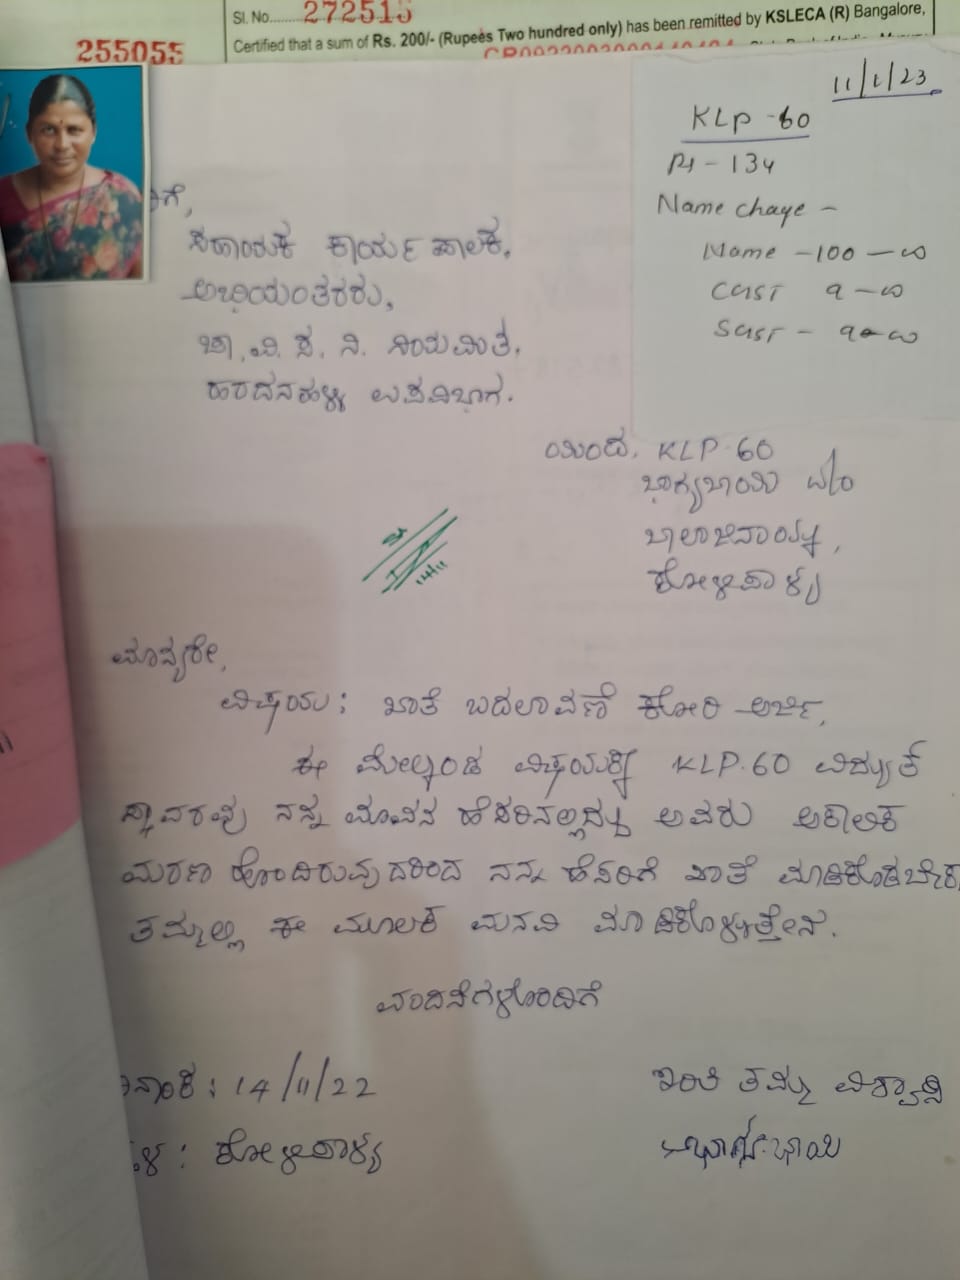 Sl. No........ 272515
255055
Certified that a sum of Rs. 200/- (Rupees Two hundred only) has been remitted by KSLECA (R) Bangalore,
11/1/23
KLP-60
- 134
Name chaye -
Name -100 - ω
CGST 9 - ω
SGST - 9 - ω
ಗೆ,
ಸಹಾಯಕ ಕಾರ್ಯಪಾಲಕ,
ಅಭಿಯಂತರರು,
ಚಾ.ವಿ.ಸ.ನಿ. ನಿಯಮಿತ,
ಹರದನಹಳ್ಳಿ ಉಪವಿಭಾಗ.
ಯಿಂದ, KLP-60
ಭಾಗ್ಯಬಾಯಿ
ಬಾಲಾಜಿನಾಯ್ಕ,
ಕೋಳಿಪಾಳ್ಯ
ಮಾನ್ಯರೇ,
ವಿಷಯ: ಖಾತೆ ಬದಲಾವಣೆ ಕೋರಿ ಅರ್ಜಿ,
ಈ ಮೇಲ್ಕಂಡ KLP.60 ವಿದ್ಯುತ್
ಸ್ಥಾವರವು ನನ್ನ ಮಾವನ ಹೆಸರಿನಲ್ಲಿದ್ದು ಅವರು ಅಕಾಲಿಕ
ಮರಣ ಹೊಂದಿರುವುದರಿಂದ ನನ್ನ ಹೆಸರಿಗೆ ಖಾತೆ
ತಮ್ಮಲ್ಲಿ ಈ ಮೂಲಕ ಮನವಿ ಮಾಡಿಕೊಳ್ಳುತ್ತೇನೆ.
ವಂದನೆಗಳೊಂದಿಗೆ
ನಾಂಕ: 14/11/22 ಇಂತಿ ತಮ್ಮ ವಿಶ್ವಾಸಿ
ಳ: ಕೋಳಿಪಾಳ್ಯ ಭಾಗ್ಯಬಾಯಿ